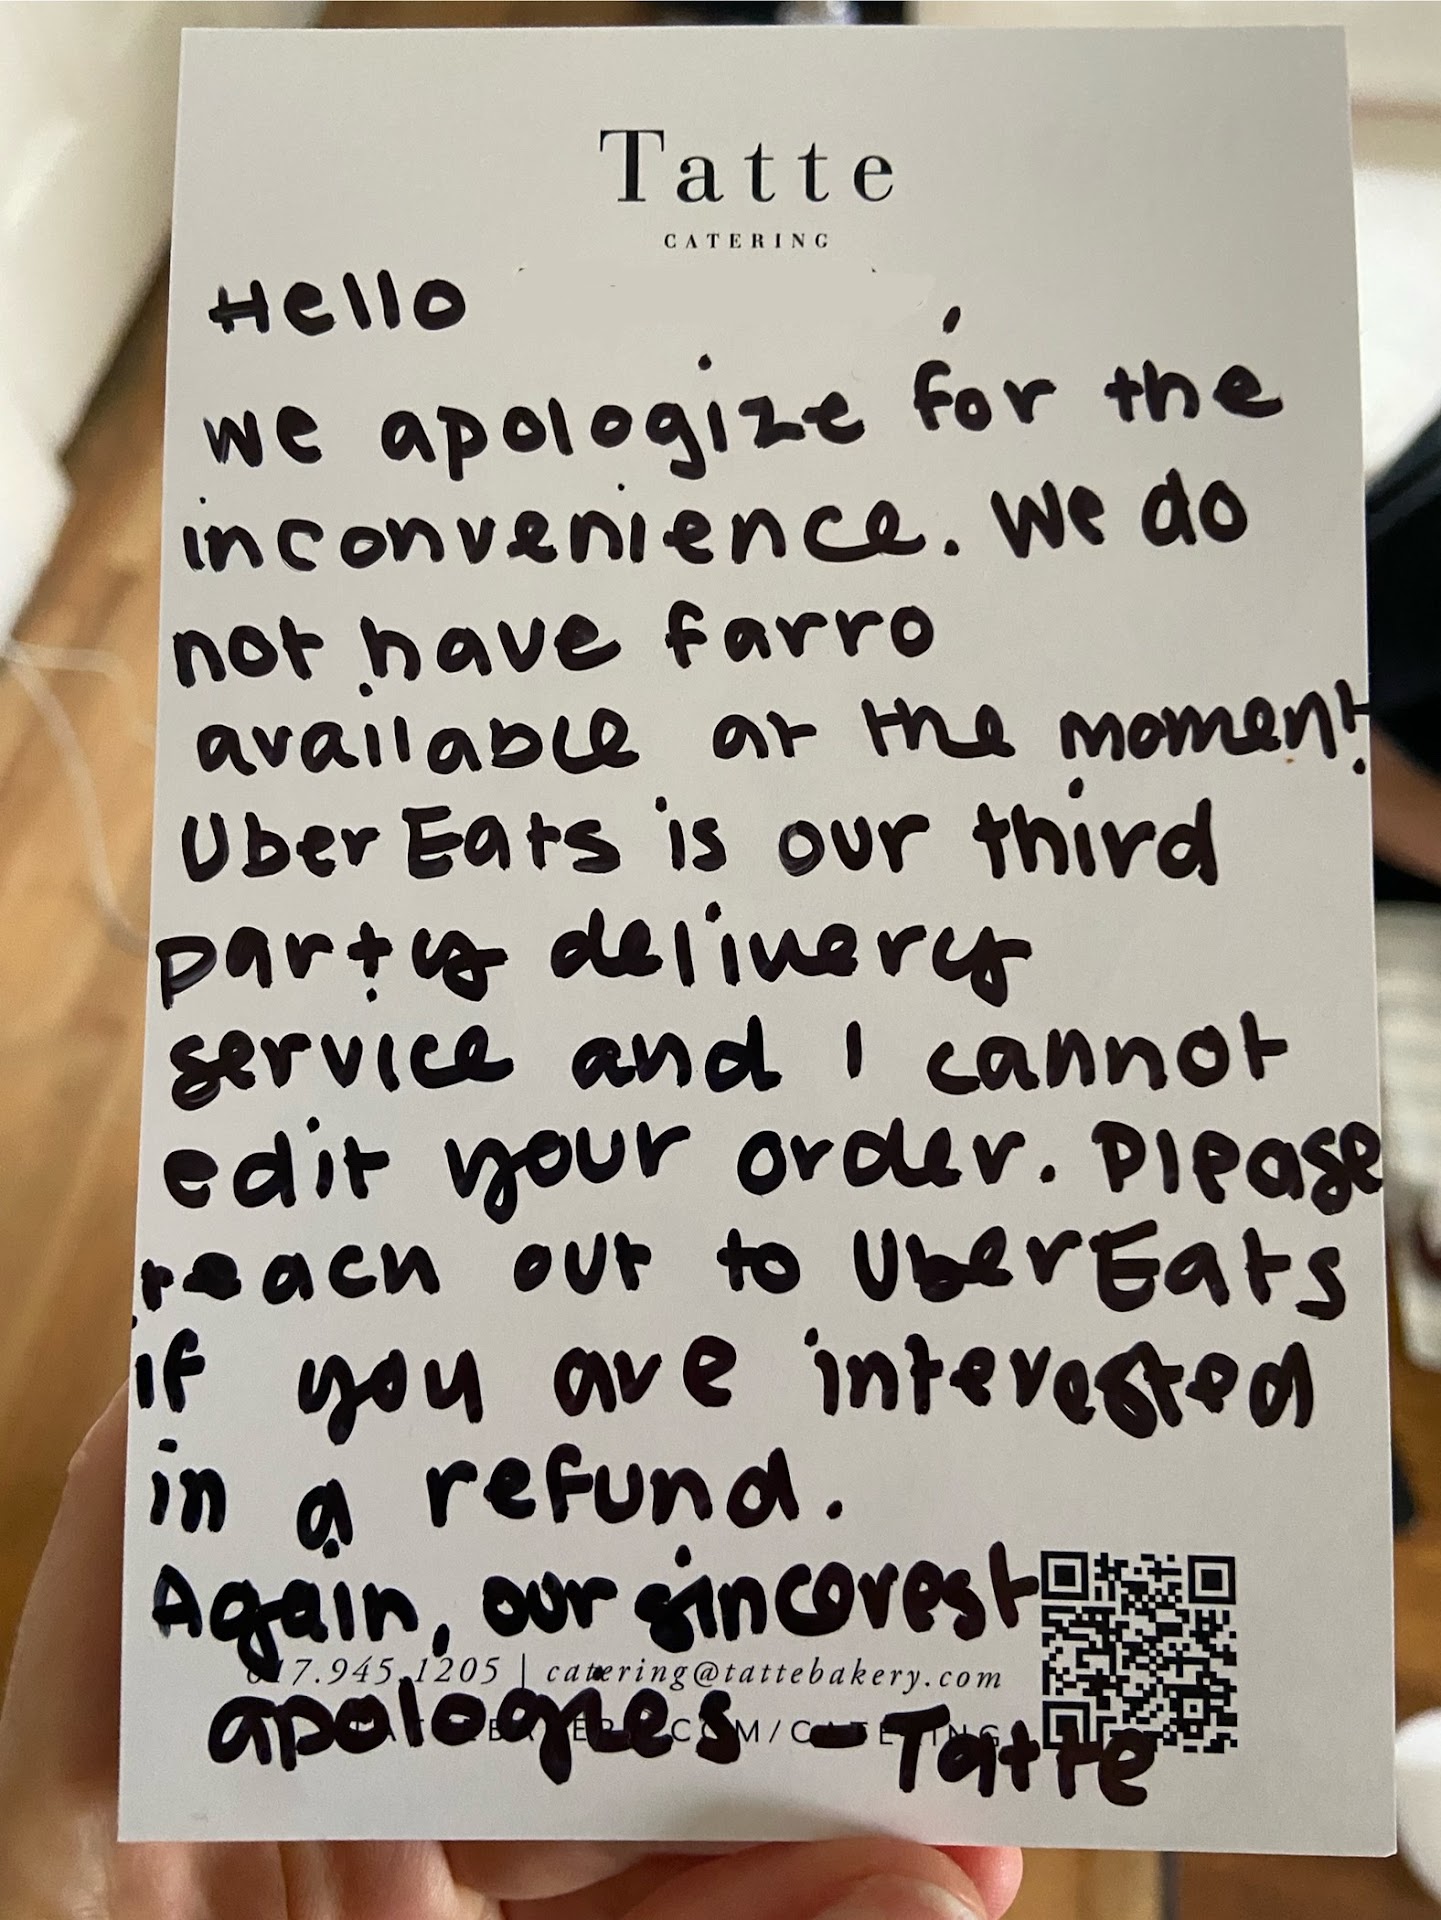 Tatte
CATERING
Hello ,
we apologize for the
inconvenience. We do
not have farro
available at the moment.
Uber Eats is our third
party delivery
service and I cannot
edit your order. Please
reach out to Uber Eats
if you are interested
in a refund.
Again, our sincerest
617.945.1205 | catering@tattebakery.com
apologies - Tatte